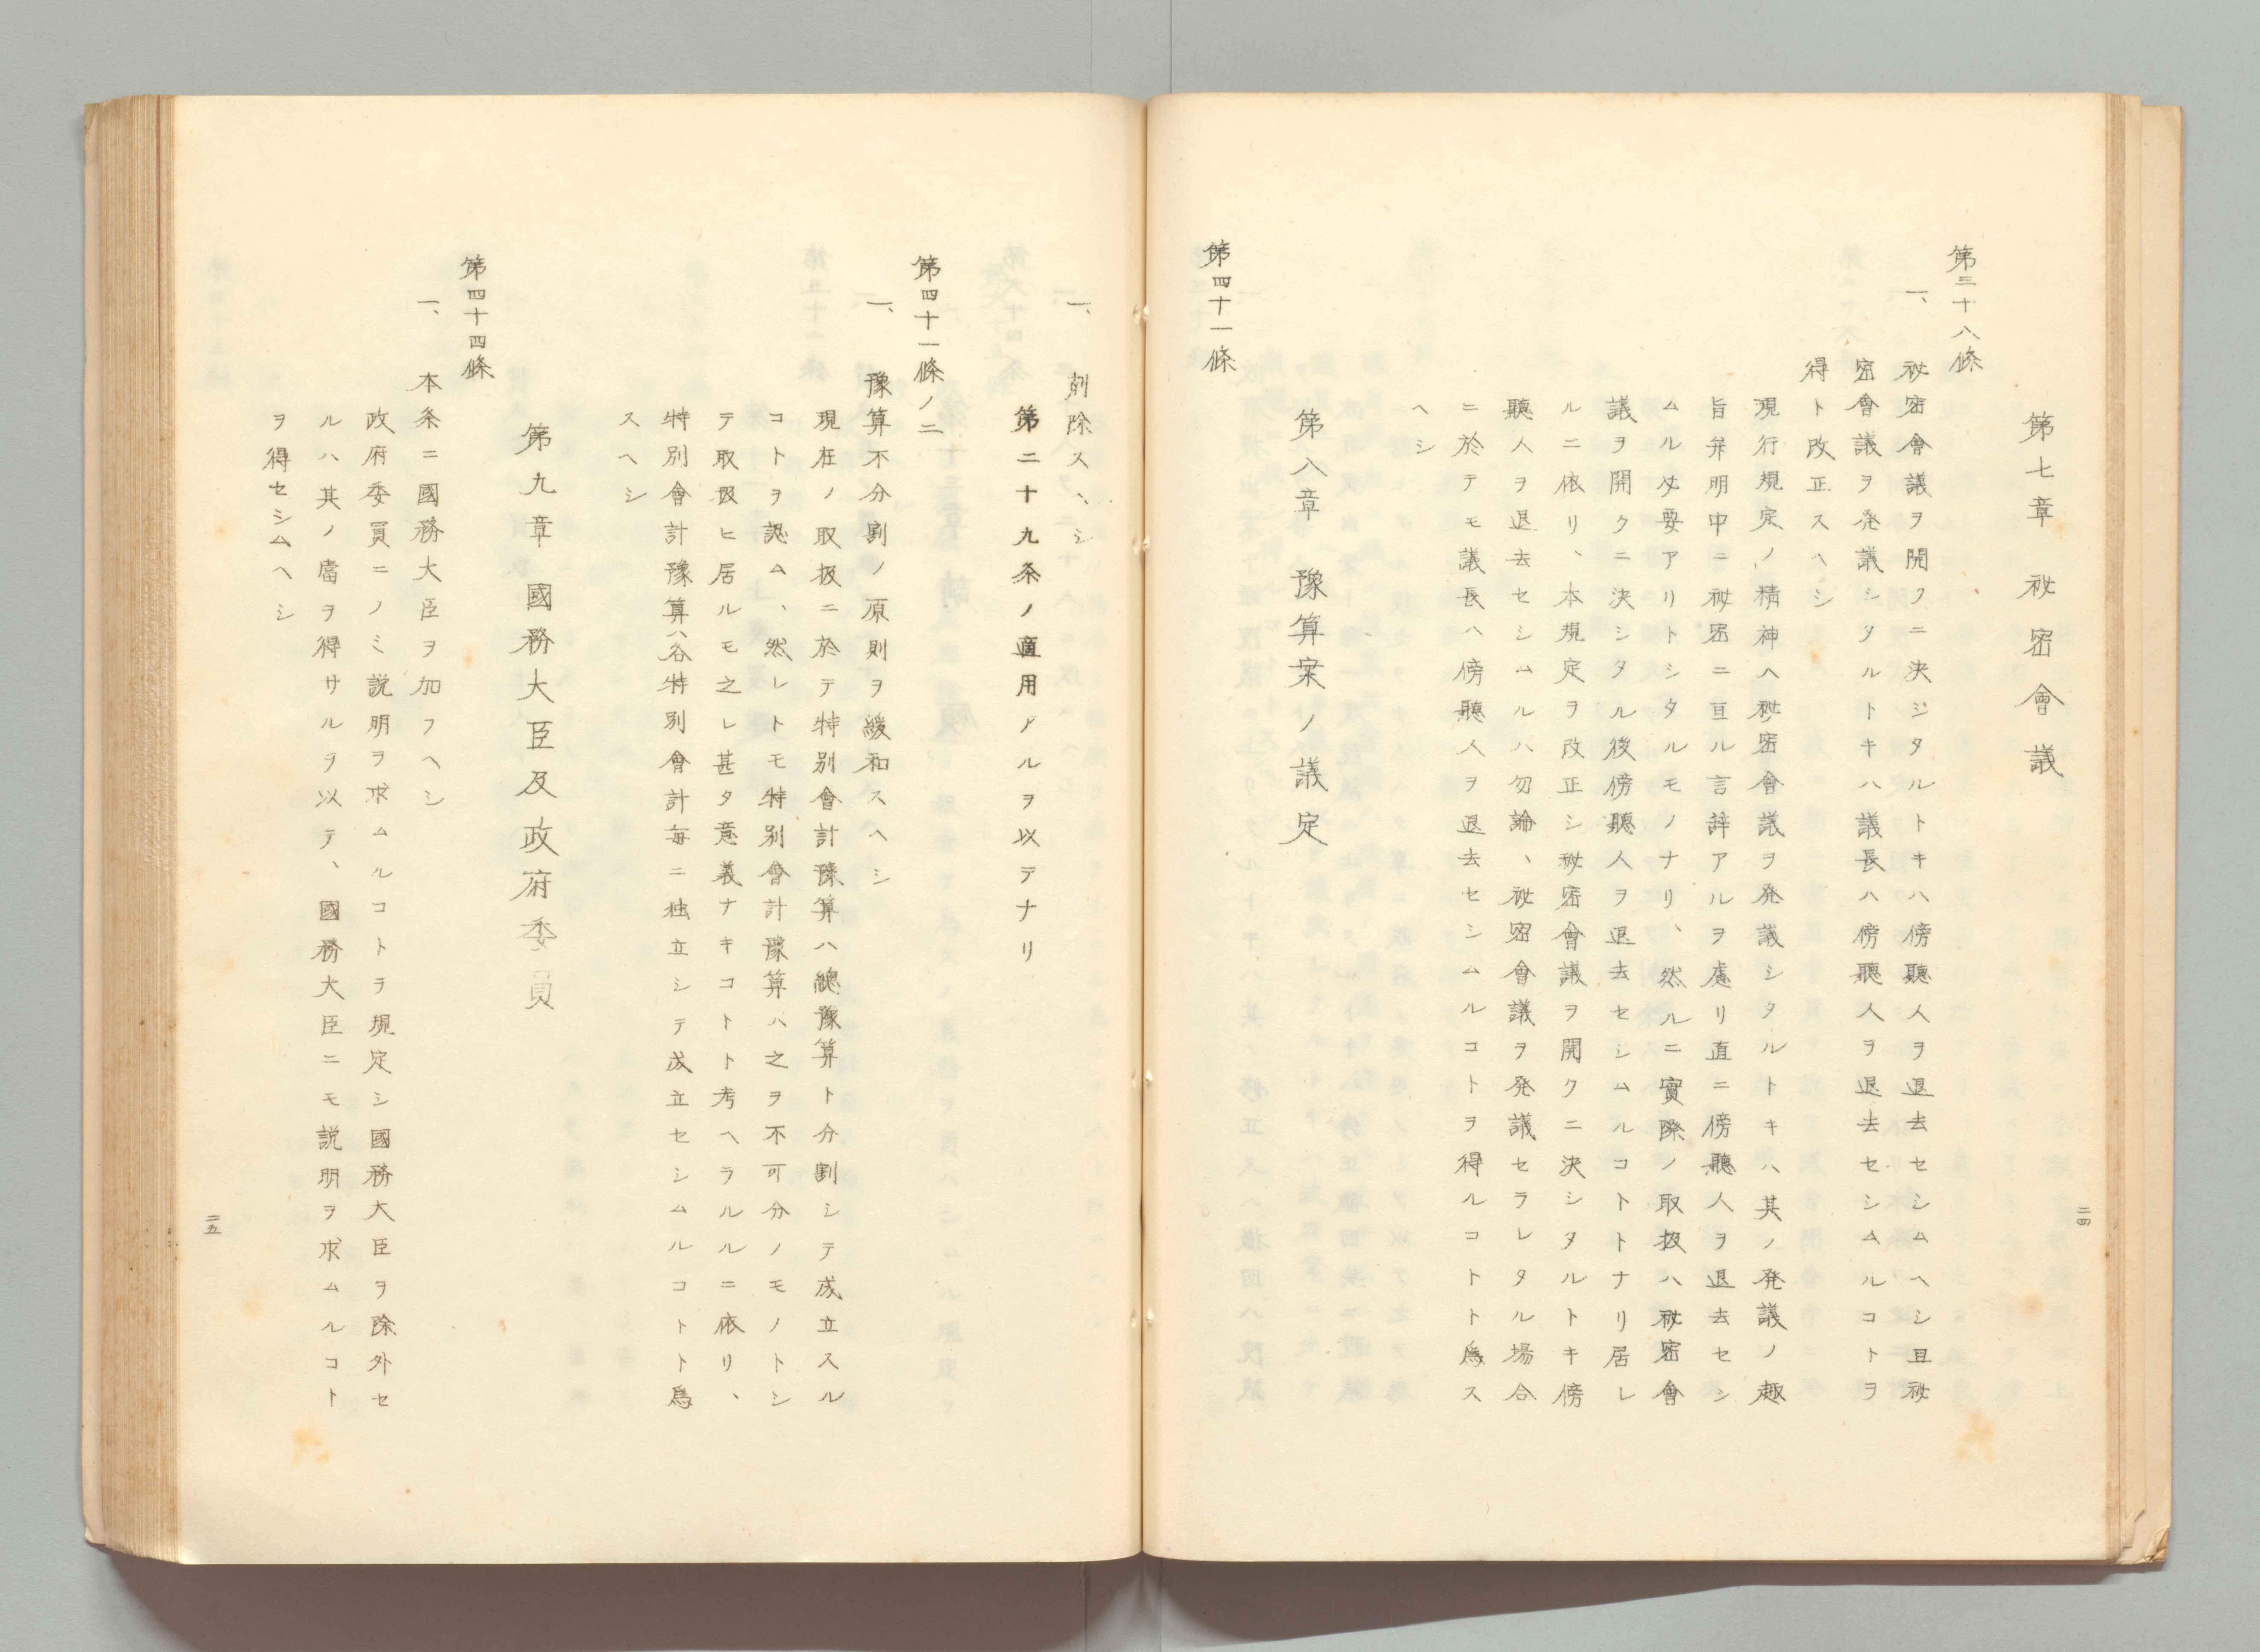 第七章　祕密會議
第三十八條
一、祕密會議ヲ開クニ決シタルトキハ傍聽人ヲ退去セシムヘシ且祕
密會議ヲ発議シタルトキハ議長ハ傍聽人ヲ退去セシムルコトヲ
得ト改正スヘシ
現行規定ノ精神ヘ祕密會議ヲ発議シタルトキハ其ノ発議ノ趣
旨弁明中ニ祕密ニ亘ル言辞アルヲ慮リ直ニ傍聽人ヲ退去セシ
ムル必要アリトシタルモノナリ、然ルニ實際ノ取扱ハ祕密會
議ヲ開クニ決シタル後傍聽人ヲ退去セシムルコトトナリ居レ
ルニ依リ、本規定ヲ改正シ祕密會議ヲ開クニ決シタルトキ傍
聽人ヲ退去セシムルハ勿論、祕密會議ヲ発議セラレタル場合
ニ於テモ議長ハ傍聽人ヲ退去セシムルコトヲ得ルコトト爲ス
ヘシ
第八章　豫算案ノ議定
第四十一條
二四
一、削除スヘシ
第二十九条ノ適用アルヲ以テナリ
第四十一條ノ二
一、豫算不分割ノ原則ヲ緩和スヘシ
現在ノ取扱ニ於テ特別會計豫算ハ總豫算ト分割シテ成立スル
コトヲ認ム、然レトモ特別會計豫算ハ之ヲ不可分ノモノトシ
テ取扱ヒ居ルモ之レ甚タ意義ナキコトト考ヘラルルニ依リ、
特別會計豫算ハ各特別會計毎ニ独立シテ成立セシムルコト爲
スヘシ
第九章　國務大臣及政府委員
第四十四條
一、本条ニ國務大臣ヲ加フヘシ
政府委員ニノミ説明ヲ求ムルコトヲ規定シ國務大臣ヲ除外セ
ルハ其ノ當ヲ得サルヲ以テ、國務大臣ニモ説明ヲ求ムルコト
ヲ得セシムヘシ
二五